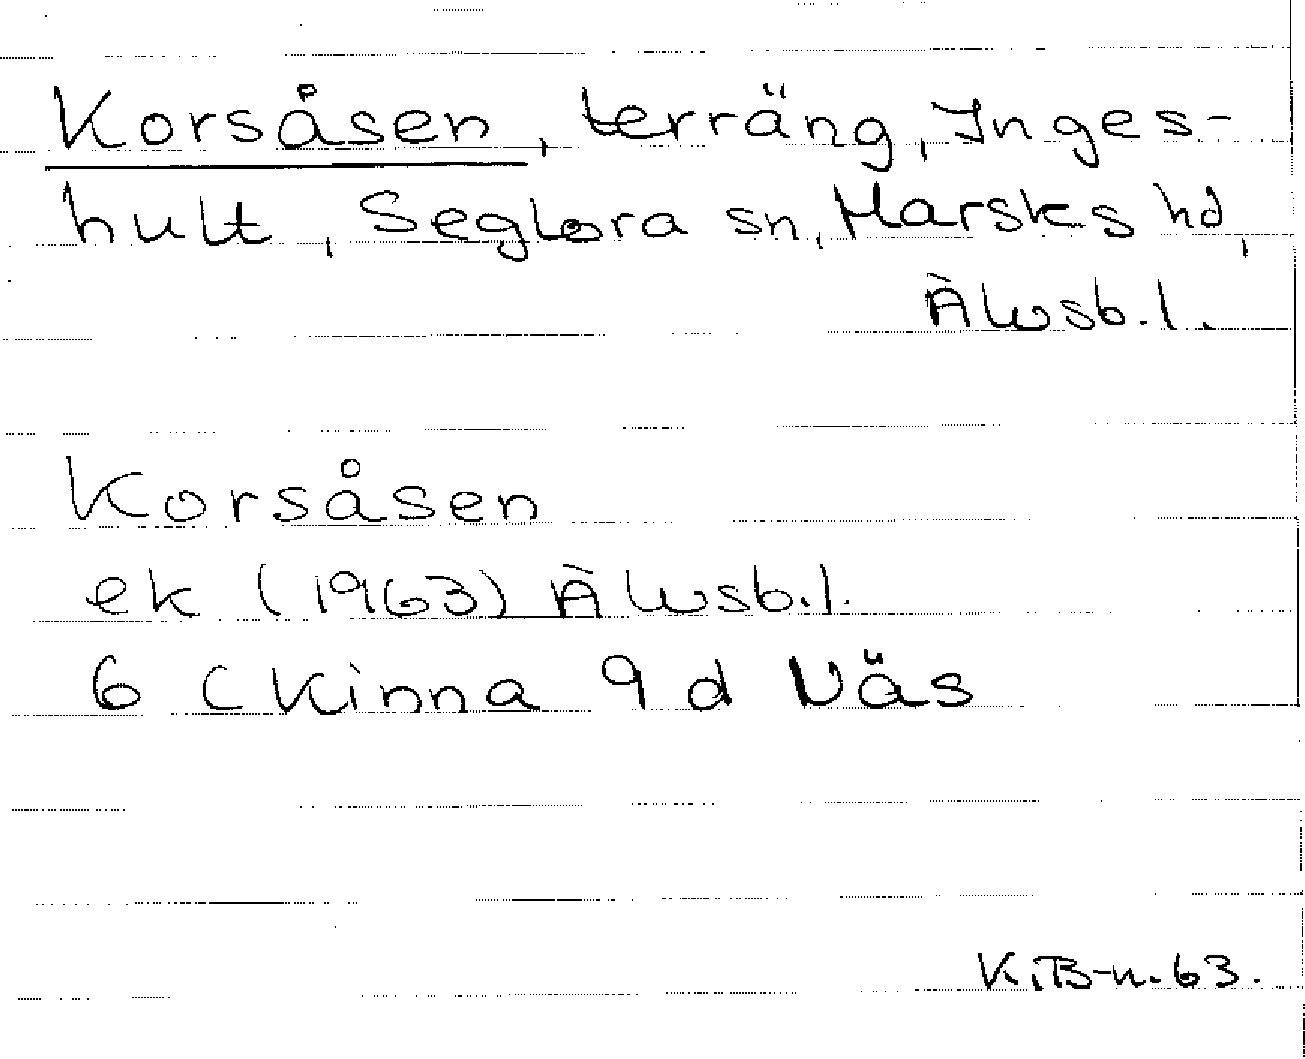 Korsåsen, terräng, Inges-
hult, Seglora sn, Marsks hd,
Älvsb.l.
Korsåsen
ek (1963) Älvsb.l.
6 C Kinna 9 d Näs
K.TB-n.63.